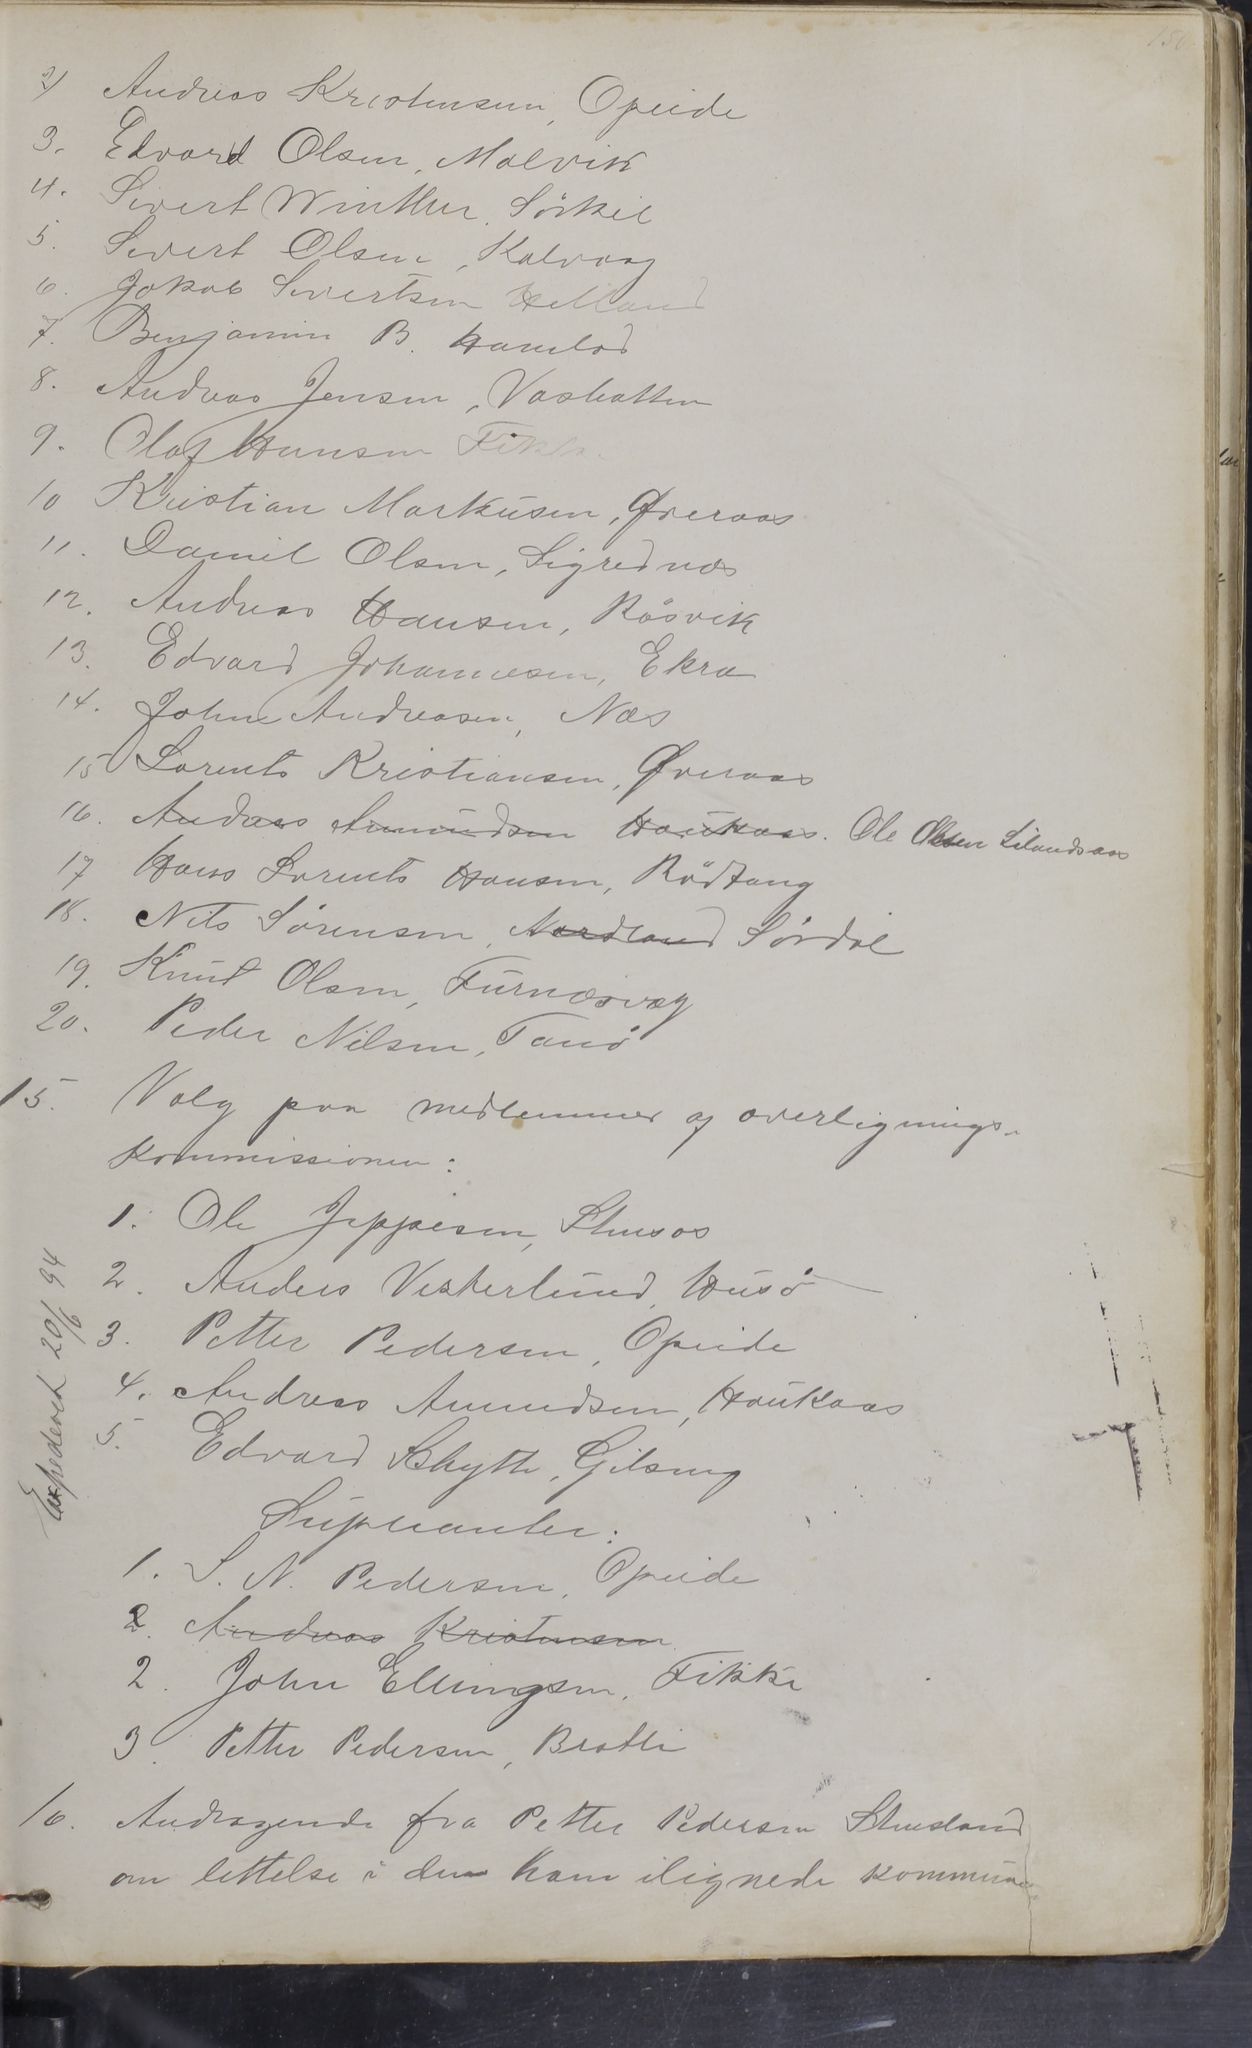 150
2) Andreas Kristensen, Opeide
3. Edvard Olsen, Malvik
4. Sivert Winther, Sörkil
5. Sivert Olsen, Kalvaag
6. Jakob Sivertsen Helland
7. Benjamin B. Hamlod
8. Andreas Jensen, Vasbatten
9. Olaf Hansen Fikke
10 Kristian Markusen, Øveraas
11. Daniel Olsen, Sigrednes
12. Andreas Hansen, Rösvik
13. Edvard Johannesen, Ekra
14. John Andreasen, Næs
15 Lorents Kristiansen, Øveraas
16. Andreas Amundsen Haukaas. Ole Olsen Lilandsaas
17 Hans Lorents Hansen, Rödtang
18. Nils Sörensen, Nordland Sördal
19. Knut Olsen, Furnæsvag
20. Peder Nilsen, Tanö
15. Valg paa medlemmer af overlignings-
kommissionen:
1. Ole Jeppesen, Stensos
2. Anders Vesterlund, Husö
3. Petter Pedersen, Opeide
4. Andreas Amundsen, Haukaas
5. Edvard Schytte, Gilseng
Expederet 20/6 94
Supleanter:
1. S. N. Pedersen, Opeide
2. Andreas Kristensen
2. John Ellingsen, Fikke
3. Petter Pedersen, Bratli
16. Andragende fra Petter Pedersen Stensland
om lettelse i den ham ilignede kommune-